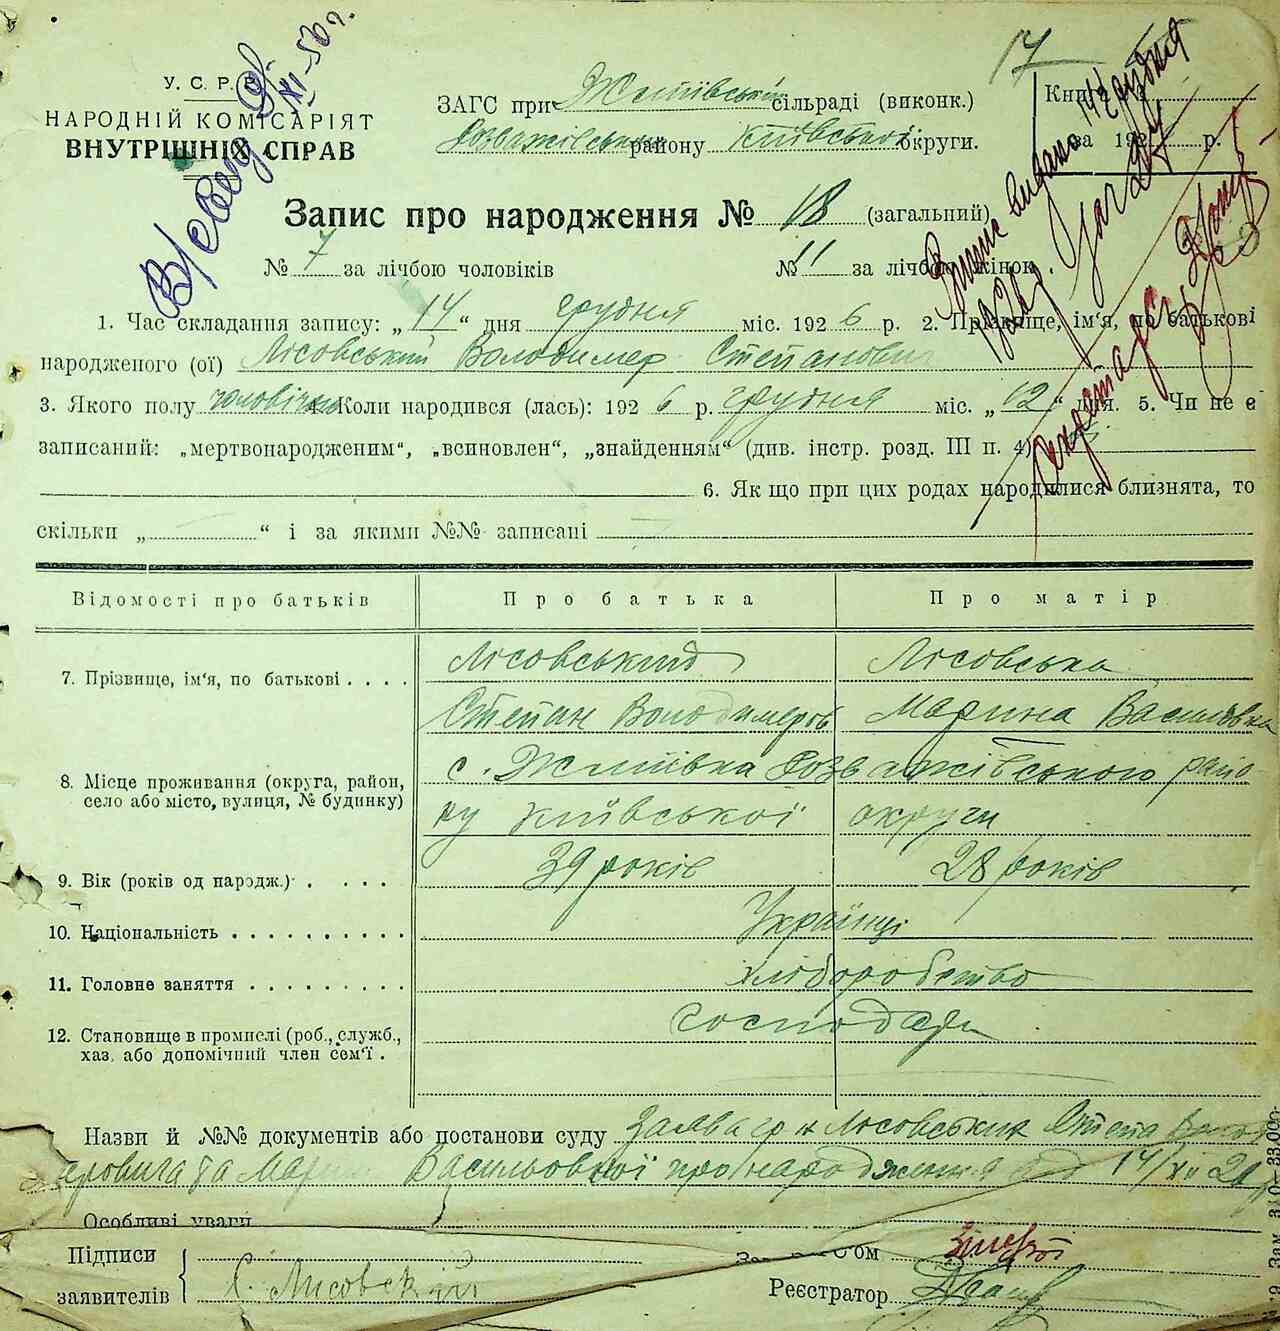 У. С. Р. Р.
НАРОДНІЙ КОМІСАРІЯТ
ВНУТРІШНІХ СПРАВ
XI-50 г.
17
ЗАГС при Жміївській сільраді (виконк.)
Розважівського району Київської округи.
Книга
за 192 р.
Запис про народження № 18 (загальний)
№ 7 за лічбою чоловіків № 11 за лічбою жінок.
1. Час складання запису: „14“ дня грудня міс. 1926 р. 2. Прізвище, ім'я, по батькові
народженого (ої) Лісовський Володимер Степанович
3. Якого полу чоловічого 4. Коли народився (лась): 1926 р. грудня міс. „12“ дня. 5. Чи не є
записаний: „мертвонародженим“, „всиновлен“, „знайденням“ (див. інстр. розд. III п. 4)
6. Як що при цих родах народилися близнята, то
скільки „ “ і за якими №№ записані
Відомості про батьків Про батька Про матір
7. Прізвище, ім'я, по батькові . . . . Лісовський Лісовська
Степан Володимеров Марина Василівна
8. Місце проживання (округа, район, с. Жміївка Розважівського райо
село або місто, вулиця, № будинку) ну Київської округи
9. Вік (років од народж.) . . . . 39 років 28 років
10. Національність . . . . . . . . . . Українці
11. Головне заняття . . . . . . . . . хліборобство
12. Становище в промислі (роб., служб., господари
хаз. або допомічний член сем'ї .
Назви й №№ документів або постанови суду Заява гр н Лісовських Степа Воло
Марини Васильовної про народження від 14/XII 26
Особливі уваги
Підписи
заявителів С. Лисовский
Реєстратор